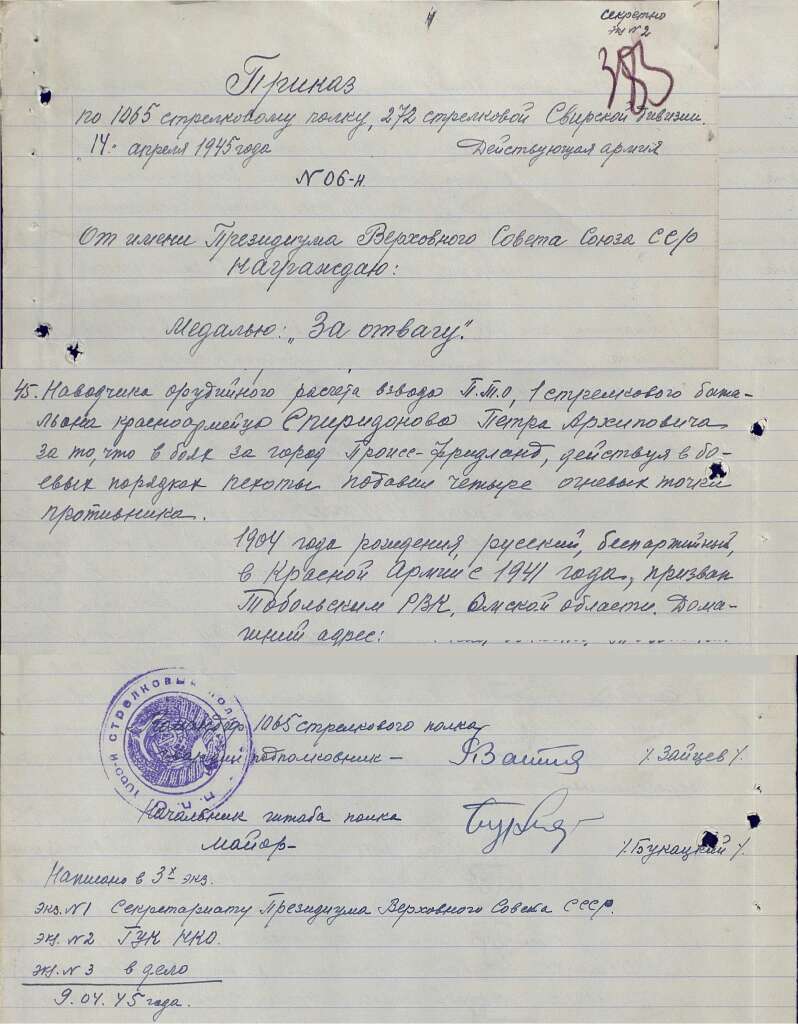 секретно
экз. N 2
383
Приказ
по 1065 стрелковому полку, 272 стрелковой Свирской дивизии.
14. апреля 1945 года Действующая армия
N 06-н.
От имени Президиума Верховного Совета Союза ССР
награждаю:
Медалью: „За отвагу".
45. Наводчика орудийного расчета взвода П.Т.О, 1 стрелкового бата-
льона красноармейца Спиридонова Петра Архиповича
за то, что в боях за город Происс-Фридланд, действуя в бо-
евых порядках пехоты подавил четыре огневых точки
противника.
1904 года рождения, русский, беспартийный,
в Красной Армии с 1941 года, призван
Тобольским РВК, Омской области. Дома-
шний адрес:
1065-й СТРЕЛКОВЫЙ ПОЛК
Командир 1065 стрелкового полка
гвардии подполковник -
/. Зайцев /.
Начальник штаба полка
майор -
/. Букацкий /.
Написано в 3х экз.
экз. N 1 Секретариату Президиума Верховного Совета СССР.
экз. N 2 ГУК НКО.
экз. N 3 в дело
9.04.45 года.